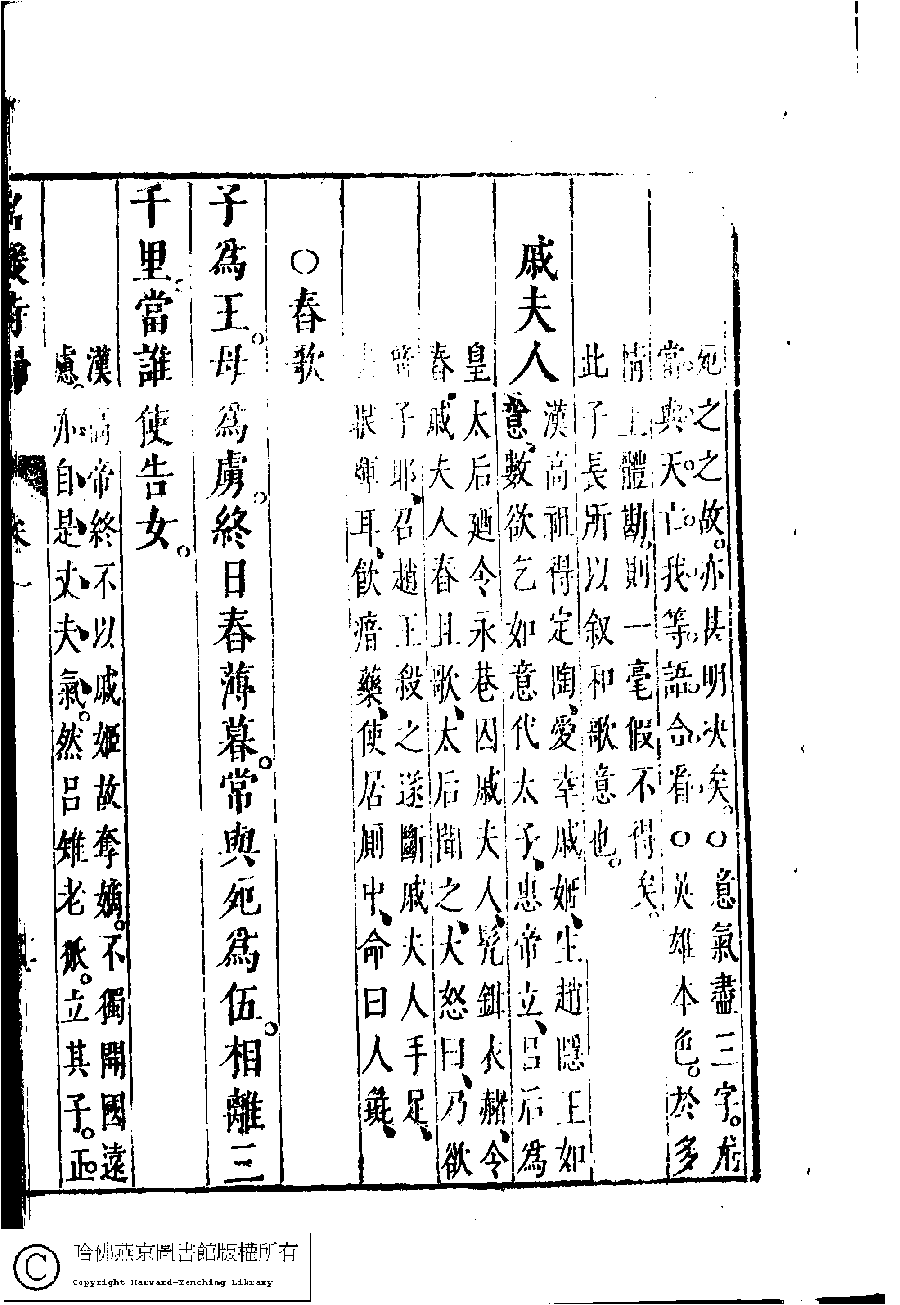 死之之故。亦甚明决矣。○意氣盡三字。尤
當與天亡我等語合看○英雄本色。於多
情上體勘。則一毫假不得矣。
此子長所以叙和歌意也。
戚夫人
漢高祖得定陶、愛幸戚姬、生趙隱王如
意、數欲乞如意代太子、惠帝立、呂后為
皇太后廼令永巷囚戚夫人、髡鉗衣赭、令
舂、戚夫人舂且歌、太后聞之、大怒曰、乃欲
子耶、召趙王殺之遂斷戚夫人手足、
眼煇耳、飲瘖藥、使居厠中、命曰人彘、
○舂歌
子為王。母為虜。終日舂薄暮。常與死為伍。相離三
千里。當誰使告女。
漢高帝終不以戚姬故奪嫡。不獨開國遠
慮。亦自是丈夫氣。然呂雉老狐。立其子。正
名媛詩歸
卷一
哈佛燕京圖書館版權所有
Copyright Harvard-Yenching Library